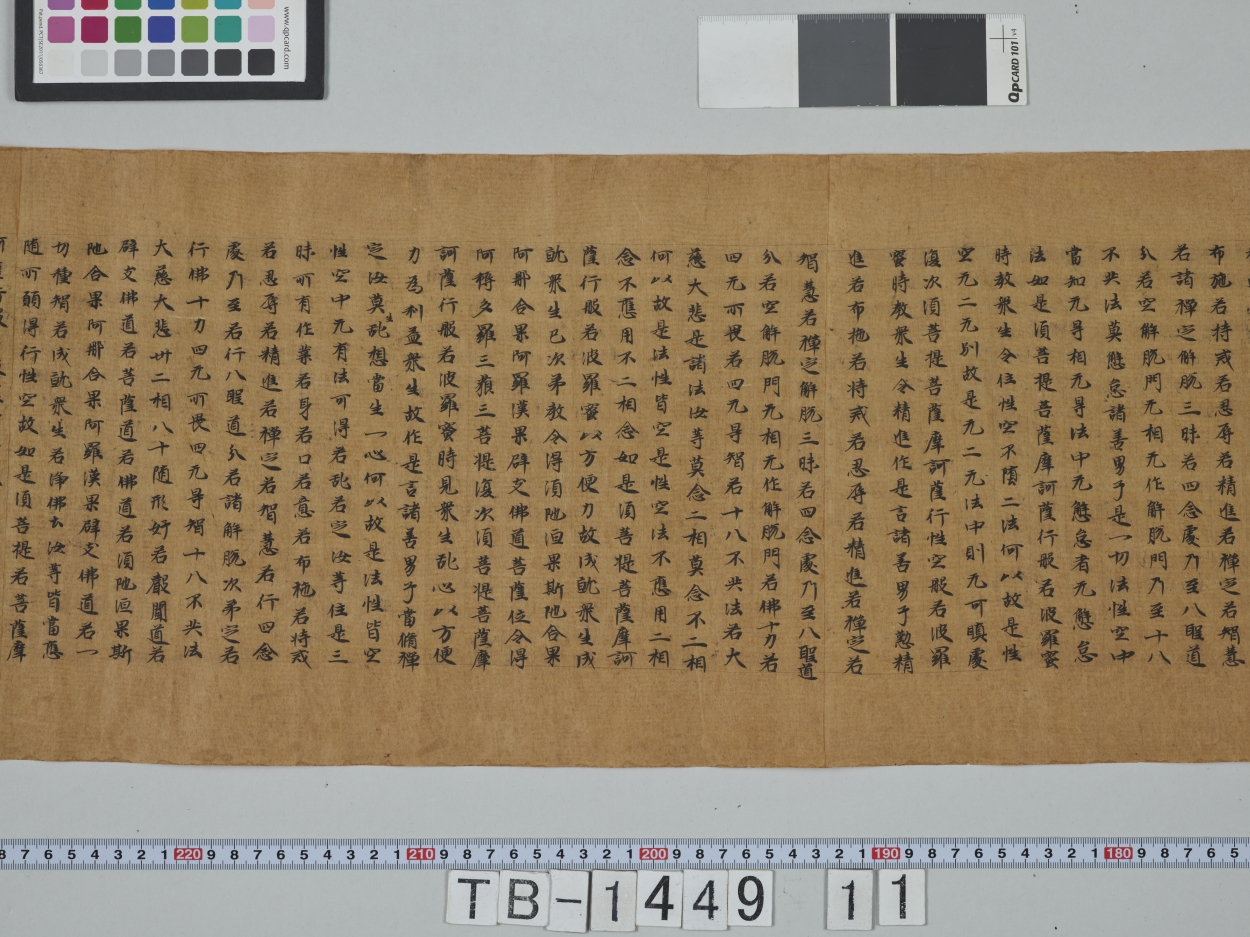 布施若持戒若忍辱若精進若禪㝎若智慧
若諸禪㝎解脫三昧若四念處乃至八聖道
分若空解脫門无相无作解脫門乃至十八
不共法莫懈怠諸善男子是一切法性空中
當知无导相无导法中无懈怠者无懈怠
法如是湏菩提菩薩摩訶薩行般若波羅蜜
時教衆生令住性空不堕二法何以故是性
空无二无別故是无二无法中則无可䫴處
復次湏菩提菩薩摩訶薩行性空般若波羅
蜜時教衆生令精進作是言諸善男子懃精
進若布施若持戒若忍辱若精進若禪㝎若
智慧若禪㝎解脫三昧若四念處乃至八聖道
分若空解脫門无相无作解脫門若佛十力若
四无所畏若四无导智若十八不共法若大
慈大悲是諸法汝等莫念二相莫念不二相
何以故是法性皆空是性空法不應用二相
念不應用不二相念如是湏菩提菩薩摩訶
薩行般若波羅蜜以方便力故成就衆生成
就衆生已次第教令得湏陁洹果斯陁含果
阿那含果阿羅漢果辟支佛道菩薩位令得
阿耨多羅三藐三菩提復次湏菩提菩薩摩
訶薩行般若波羅蜜時見衆生乱心以方便
力為利益衆生故作是言諸善男子當脩禪
㝎汝莫生乱想當生一心何以故是法性皆空
性空中无有法可得若乱若㝎汝等住是三
昧所有作業若身若口若意若布施若持戒
若忍辱若精進若禪㝎若智慧若行四念
處乃至若行八聖道分若諸解脫次第㝎若
行佛十力四无所畏四无导智十八不共法
大慈大悲卅二相八十随形好若聲聞道若
辟支佛道若菩薩道若佛道若湏陁洹果斯
陁含果阿那含果阿羅漢果辟支佛道若一
切種智若成就衆生若淨佛土汝等皆當應
随所願得行性空故如是湏菩提若菩薩摩
www.qpcard.com
QpCARD 101 v4
8 7 6 5 4 3 2 1 220 9 8 7 6 5 4 3 2 1 210 9 8 7 6 5 4 3 2 1 200 9 8 7 6 5 4 3 2 1 190 9 8 7 6 5 4 3 2 1 180 9 8 7 6 5
TB-1449 11